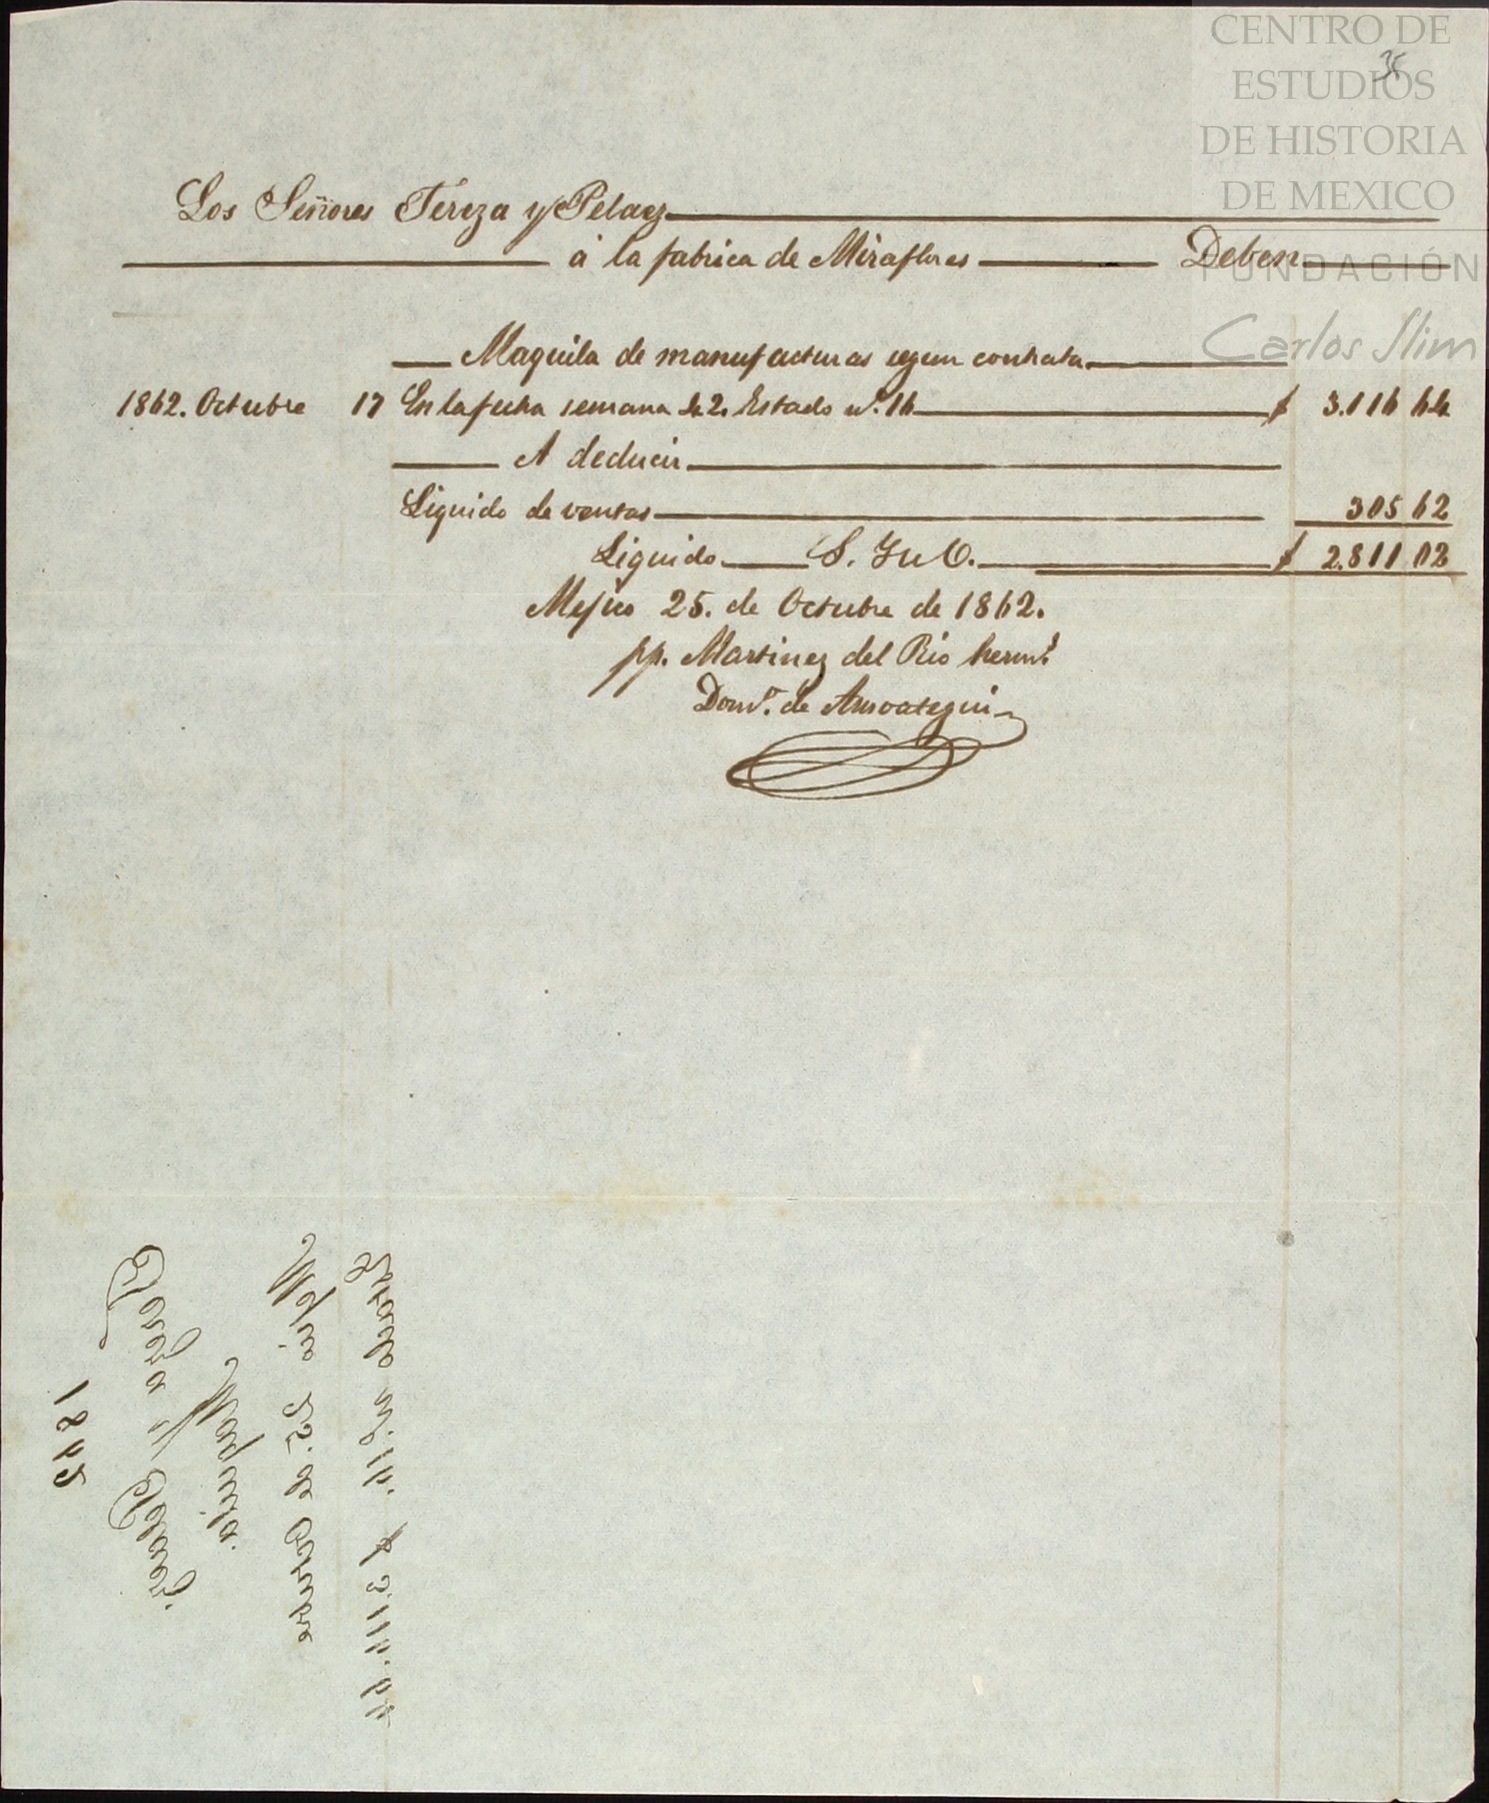 CENTRO DE
ESTUDIOS
DE HISTORIA
DE MEXICO
FUNDACIÓN
Carlos Slim
Los Señores Tereza y Pelaez
à la fabrica de Miraflores Deben
Maquila de manufacturas segun contrata
1862. Octubre 17 En la fecha semana 42. Estado nº. 16 $ 3.116 64
A deducir
Liquido de ventas 305 62
Liquido S. Y u O. $ 2.811 02
Mejico 25. de Octubre de 1862.
pp. Martinez del Rio hermˢ.
Domº. de Ansoategui
1862
Tereza y Pelaez.
Maquila.
Mejico 25. de Octubre
Estado nº. 16. $ 3.116.64